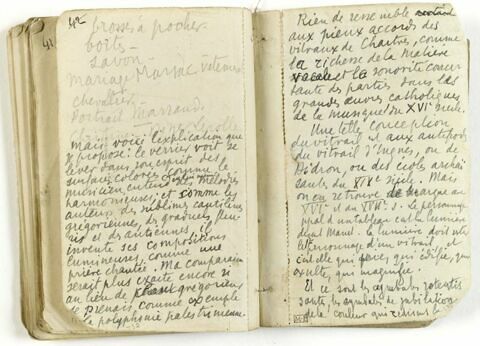 42
41
brosses à pocher
boites -
savon -
mariage Marsac vetements
chevaliers -
Portrait Marrand.
Mais voici l'explication que
je propose : le verrier voit se
lever dans son esprit des
surfaces colorées comme le
musicien entend des mélodies
harmonieuses, et comme les
auteurs des sublimes cantilènes
grégoriennes, des graduels, 
et des antiennes, il
invente ses compositions
lumineuses, comme une
prière chantée. Ma comparaison
serait plus exacte encore si
au lieu de plain grégorien
je prenais comme exemple
la polyphonie palestrinienne
Rien de ressemble
aux pieux accords des
vitraux de Chartres, comme
la richesse de la matière
vocale et la sonorité
des parties dans les
grandes œuvres catholiques
de la musique du XVIe siècle.
Une telle conception
du vitrail est aux antipodes
du vitrail d'Ingres, ou de
Didron, ou des écoles
du XIXe siècle. Mais
on en retrouve la marque au
XVIe et au XVIIe s. Le personnage
d'un tableau est la lumière
dit Manet. La lumière doit être
le personnage d'un vitrail, et
c'est elle qui qui édifie, qui
exulte, qui magnifie.
Et ce sont les symboles
les symboles de jubilation
de la couleur qui